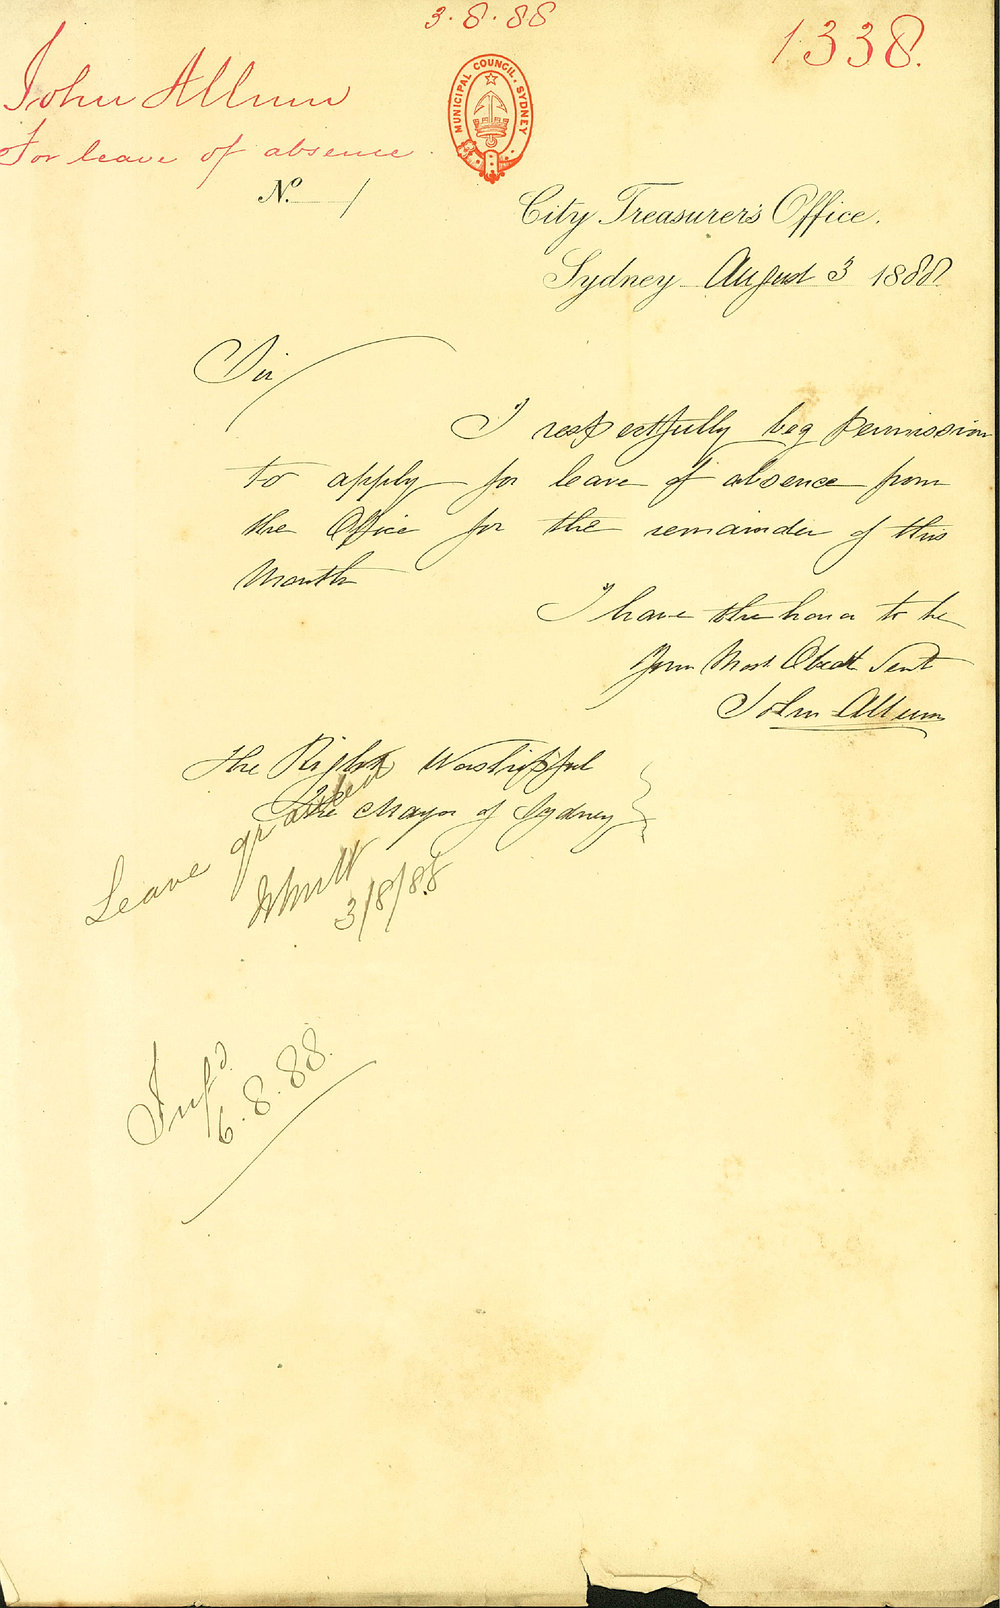 3.8.88
1338.
John Allum
For leave of absence.
MUNICIPAL COUNCIL. SYDNEY
No. /
City Treasurer's Office.
Sydney August 3 1888
Sir
I respectfully beg permission
to apply for leave of absence from
the Office for the remainder of this
Month
I have the honor to be
Your Most Obedt Servt
John Allum
The Right Worshipful
The Mayor of Sydney
Leave granted
3/8/88
Infd
6.8.88.